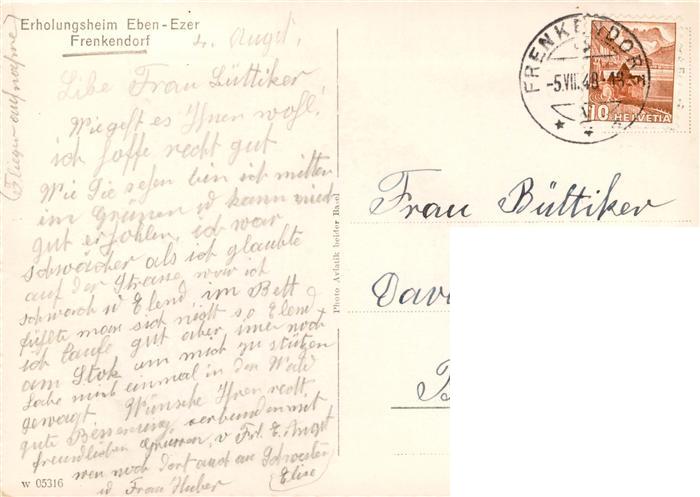 Erholungsheim Eben-Ezer
Frenkendorf
(Flieger-aufnahme)
4. Augst.
Libe Frau Büttiker
Wie geht es Ihnen wohl!
ich hoffe recht gut
Wie Sie sehen bin ich mitten
im Grünen u kann mich
gut erhohlen, ich war
schwächer als ich glaubte
auf der Strasse war ich
schwach u Elend, im Bett
fühlte man sich nicht so Elend
ich laufe gut aber imer noch
am Stok um mich zu stüzen
habe mich einmal in den Wald
gewagt Wünsche Ihnen recht
gute Besserung verbunden mit
freundlichen Grussen, v Frl. E. Angst
wen noch dort auch an Schwester
Elise
u Frau Huber
w 05316
Photo Aviatik beider Basel
FRENKENDORF
-5.VII.48-18
10 HELVETIA
Frau Büttiker
Dav
B